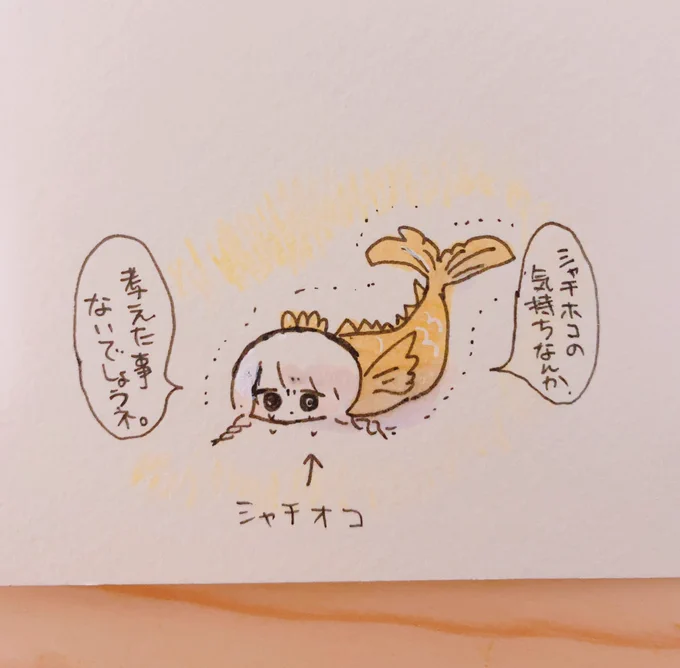 シャチホコの
気持ちなんか
考えた事
ないでしょうネ。
シャチオコ